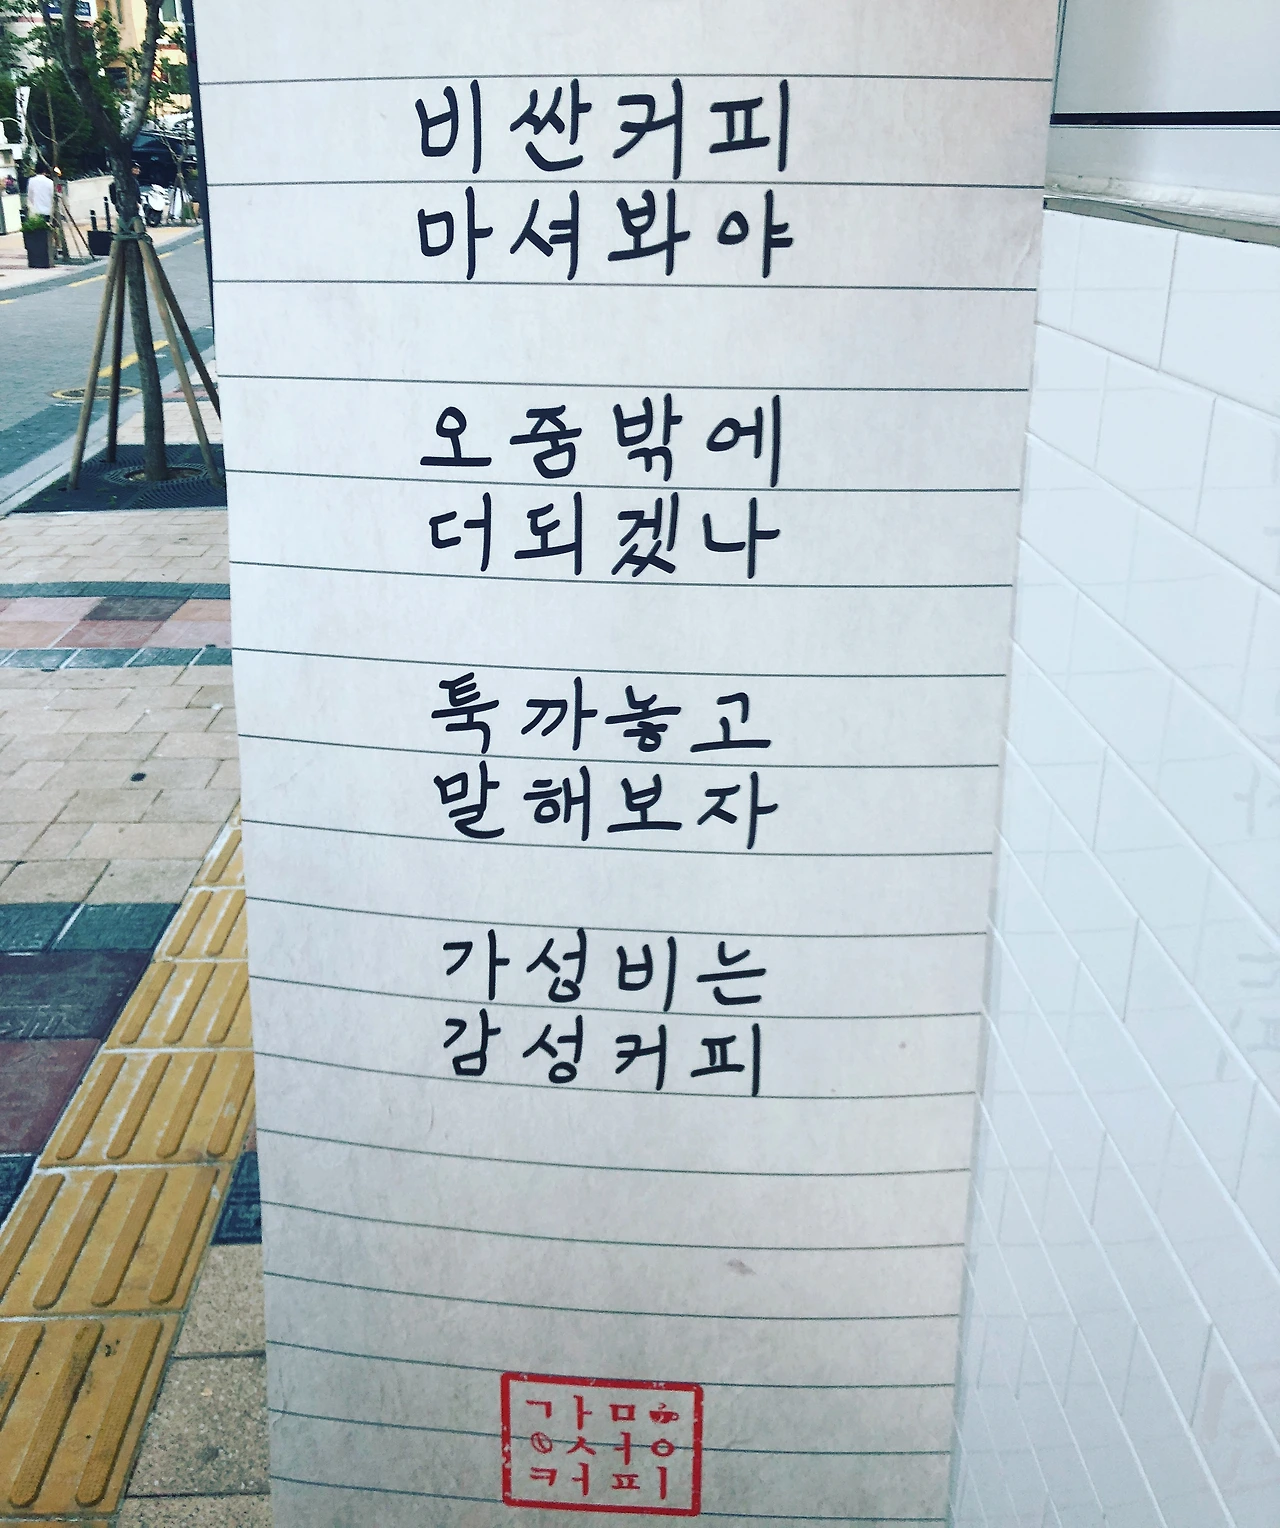 비싼커피
마셔봐야
오줌밖에
더되겠나
툭까놓고
말해보자
가성비는
감성커피
ㄱㅏㅁ
ㅅㅓㅇ
ㅋㅓㅍㅣ